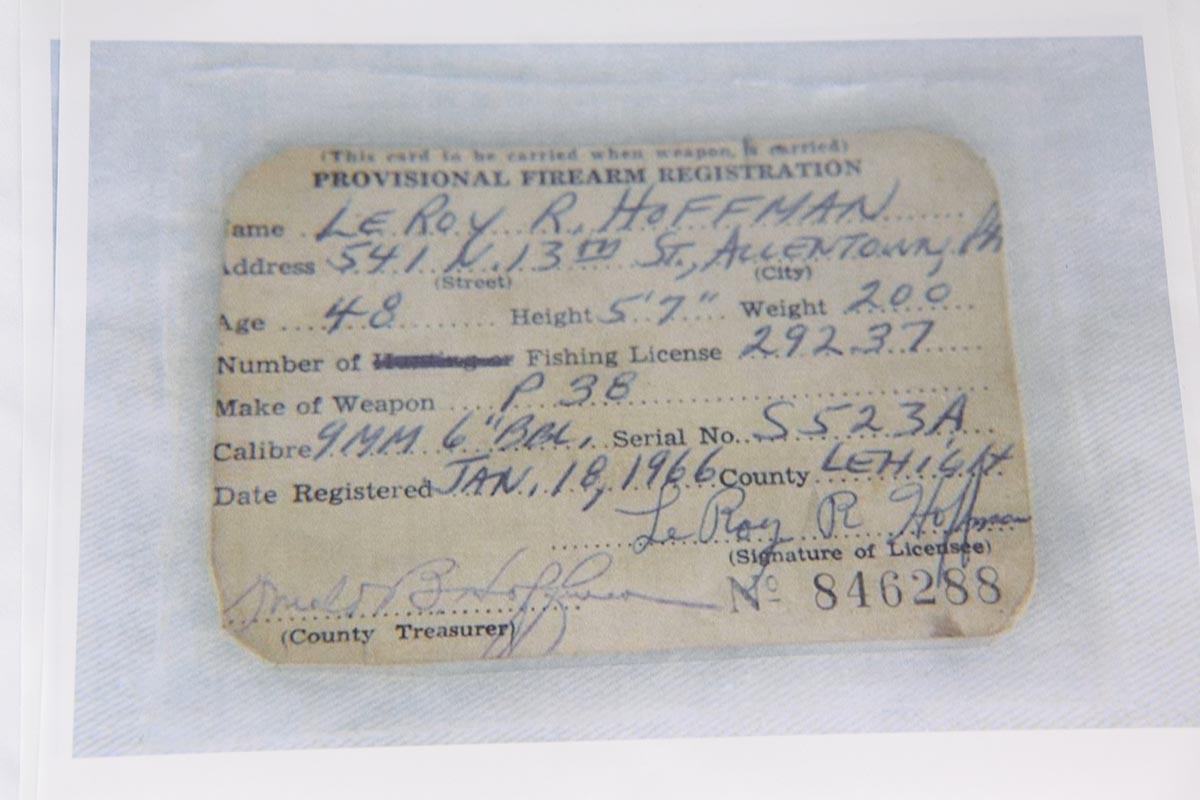 (This card to be carried when weapon is carried)
PROVISIONAL FIREARM REGISTRATION
ame LEROY R. HOFFMAN
Address 541 N. 13TH St., ALLENTOWN, PA
(Street) (City)
Age 48 Height 5'7" Weight 200
Number of Hunting or Fishing License 29237
Make of Weapon P 38
Calibre 9MM 6"BBL. Serial No. S523A
Date Registered JAN. 18, 1966 County LEHIGH
LeRoy R Hoffman
(Signature of Licensee)
No 846288
B Hoffman
(County Treasurer)